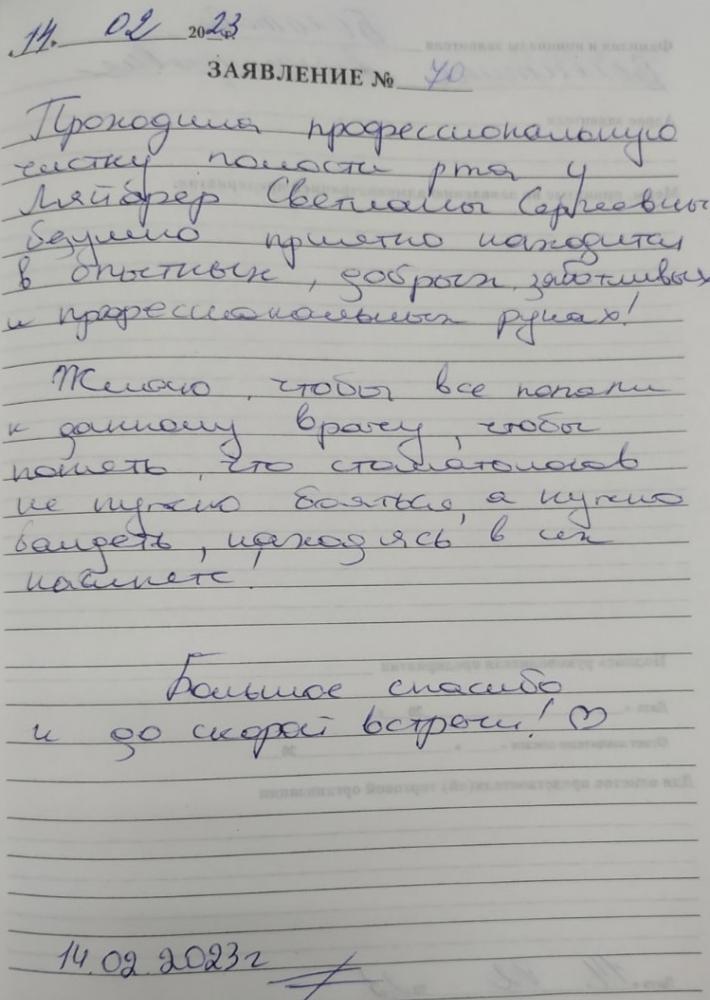 14. 02 2023г.
ЗАЯВЛЕНИЕ № 70
Проходила профессиональную
чистку полости рта у
Ляйфрер Светланы Сергеевны
безумно приятно находится
в опытных, добрых, заботливых
и профессиональных руках!
Желаю, чтобы все попали
к данному врачу, чтобы
понять, что стоматологов
не нужно бояться, а нужно
балдеть, находясь в их
кабинете!
Большое спасибо
и до скорой встречи!
14.02.2023г